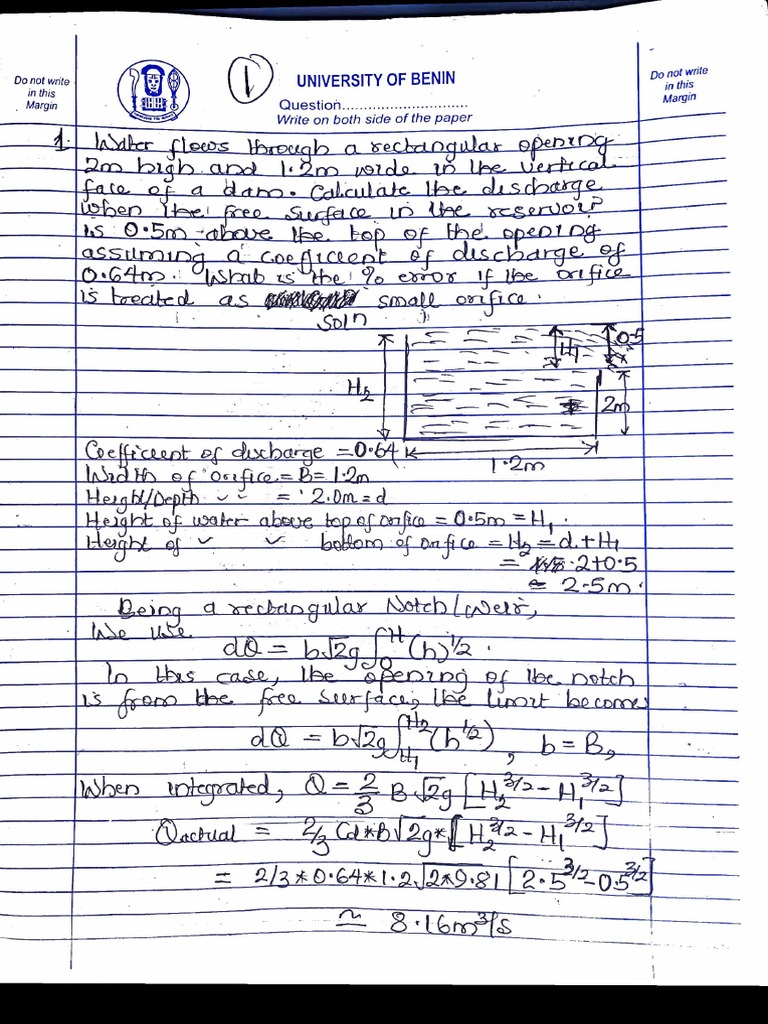 Do not write
in this
Margin
1
UNIVERSITY OF BENIN
Question..............................
Write on both side of the paper
Do not write
in this
Margin
1. Water flows through a rectangular opening
2m high and 1.2m wide in the vertical
face of a dam. Calculate the discharge
when the free surface in the reservoir
is 0.5m above the top of the opening
assuming a coefficient of discharge of
0.64m. What is the % error if the orifice
is treated as small orifice.
Soln
H₂
H₁
0.5
2m
1.2m
Coefficient of discharge = 0.64
Width of orifice = B = 1.2m
Height/Depth " " = 2.0m = d
Height of water above top of orifice = 0.5m = H₁.
Height of " " bottom of orifice = H₂ = d + H₁
= 2+0.5
= 2.5m.
Being a rectangular Notch/Weir,
We use
dQ = b√2g ∫₀ᴴ (h)^1/2.
In this case, the opening of the notch
is from the free surface, the limit becomes
dQ = b√2g ∫_H₁^H₂ (h^1/2), b = B,
When integrated, Q = 2/3 B√2g [H₂^3/2 - H₁^3/2]
Qactual = 2/3 Cd*B√2g*[H₂^3/2 - H₁^3/2]
= 2/3*0.64*1.2√2*9.81 [2.5^3/2 - 0.5^3/2]
≃ 8.16m³/s